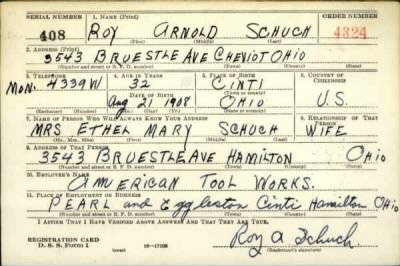 SERIAL NUMBER 1. NAME (Print) ORDER NUMBER
408 ROY ARNOLD SCHUCH 4324
(First) (Middle) (Last)
2. ADDRESS (Print)
3543 BRUESTLE AVE CHEVIOT OHIO
(Number and street or R. F. D. number) (Town) (County) (State)
3. TELEPHONE 4. AGE IN YEARS 5. PLACE OF BIRTH 6. COUNTRY OF CITIZENSHIP
MON. 4339W 32 CINTI
DATE OF BIRTH (Town or county)
Aug 21 1908 OHIO U.S.
(Exchange) (Number) (Mo.) (Day) (Yr.) (State or country)
7. NAME OF PERSON WHO WILL ALWAYS KNOW YOUR ADDRESS 8. RELATIONSHIP OF THAT PERSON
MRS ETHEL MARY SCHUCH WIFE
(Mr., Mrs., Miss) (First) (Middle) (Last)
9. ADDRESS OF THAT PERSON
3543 BRUESTLE AVE HAMILTON OHIO
(Number and street or R. F. D. number) (Town) (County) (State)
10. EMPLOYER'S NAME
AMERICAN TOOL WORKS.
11. PLACE OF EMPLOYMENT OR BUSINESS
PEARL and Eggleston Cinti Hamilton Ohio
(Number and street or R. F. D. number) (Town) (County) (State)
I AFFIRM THAT I HAVE VERIFIED ABOVE ANSWERS AND THAT THEY ARE TRUE.
REGISTRATION CARD
D. S. S. Form 1 Roy A Schuch
(Registrant's signature)